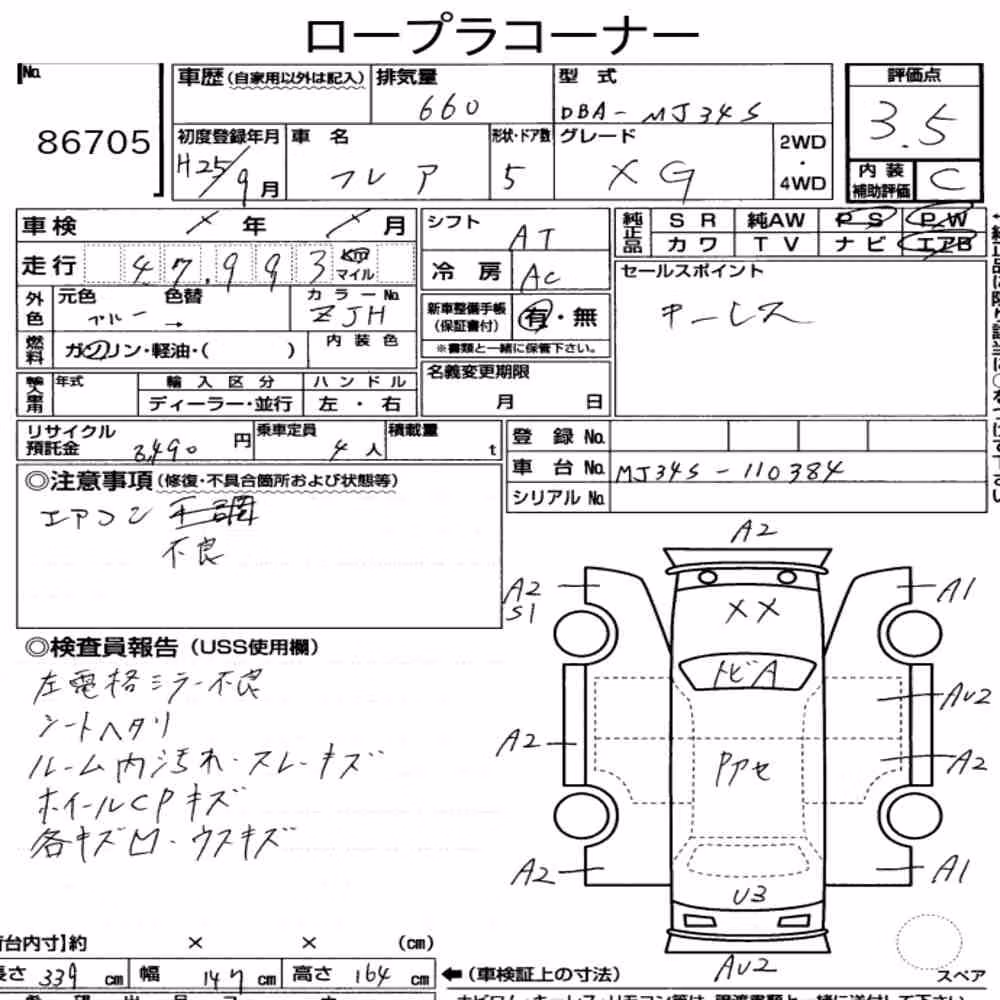 ロープラコーナー
No. 86705
車歴(自家用以外は記入) 排気量 660 型式 DBA-MJ34S
評価点 3.5
初度登録年月 H25/9月 車名 フレア 形状・ドア数 5 グレード XG 2WD・4WD
内装補助評価 C
車検 / 年 / 月
走行 47,993 km マイル
外色 元色 ブルー 色替 → カラーNo. ZJH
燃料 ガソリン・軽油・( ) 内装色
年式 輸入区分 ハンドル
ディーラー・並行 左・右
シフト AT
冷房 AC
新車整備手帳(保証書付) 有・無
※書類と一緒に保管下さい。
名義変更期限
月 日
純正品 SR 純AW PS PW
カワ TV ナビ エアB
セールスポイント
キーレス
リサイクル預託金 8,490 円 乗車定員 4人 積載量 t
登録No.
車台No. MJ34S-110384
シリアルNo.
◎注意事項(修復・不具合箇所および状態等)
エアコン
不良
◎検査員報告(USS使用欄)
左電格ミラー不良
シートヘタリ
ルーム内汚れ・スレ・キズ
ホイールCPキズ
各キズ凹・ウスキズ
A2
A2 S1
A1
XX
トビA
AU2
A2
A2
Pアセ
A2
A1
U3
AU2
スペア
荷台内寸】約 × × (cm)
長さ 339 cm 幅 147 cm 高さ 164 cm
←(車検証上の寸法)